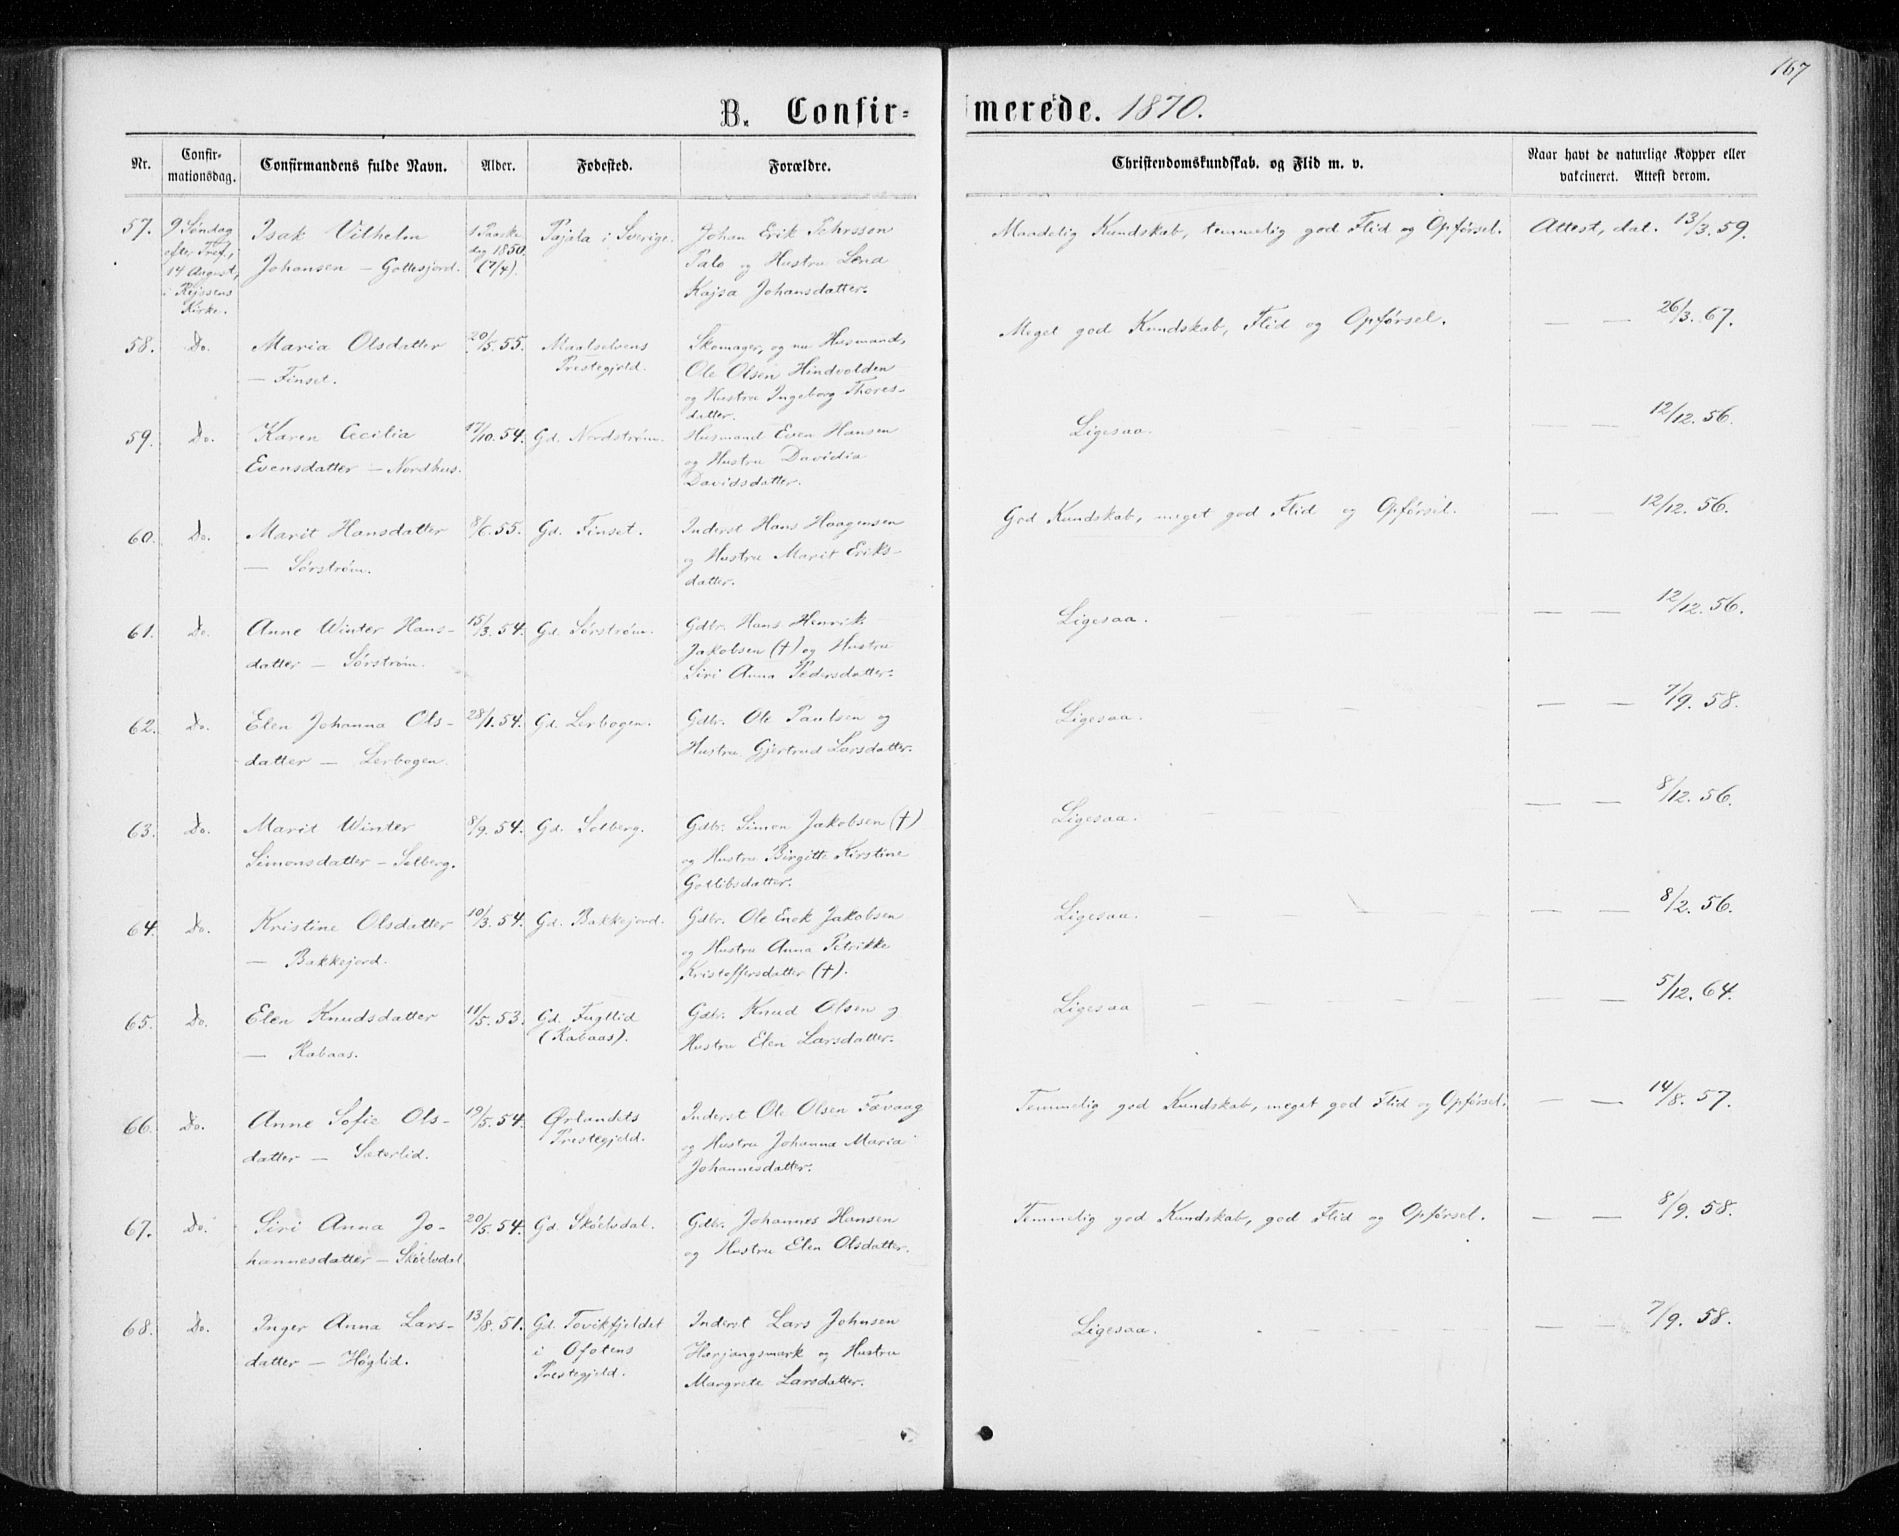 167
B. Confirmerede. 1870.
Nr. Confirmationsdag. Confirmandens fulde Navn. Alder. Fødested. Forældre. Christendomskundskab. og Flid m. v. Naar havt de naturlige Kopper eller vakcineret. Attest derom.
57. 9 Søndag efter Tref., 14 August, i Kirke. Isak Vilhelm Johansen — Gottesjord. 1 Paaskedag 1850. Pajala i Sverige. Johan Erik Palo og Hustru Lena Kajsa Johansdatter. Maadelig Kundskab, temmelig god Flid og Opførsel. Attest, dat. 13/3. 59.
58. Do. Maria Olsdatter — Finset. 20/5. 55. Maalselvens Prestegjeld. Skomager, og nu Husmand, Ole Olsen Hindvolden og Hustru Ingeborg Thoresdatter. Meget god Kundskab, Flid og Opførsel. — — 26/3. 67.
59. Do. Karen Cecilia Evensdatter — Nordhus. 17/10. 54. Gd. Nordstrøm. Husmand Even Hansen og Hustru Davidia Davidsdatter. Ligesaa. 12/12. 56.
60. Do. Marit Hansdatter — Sørstrøm. 8/6. 55. Gd. Finset. Inderst Hans Haagensen og Hustru Marit Eriksdatter. God Kundskab, meget god Flid og Opførsel. — — 12/12. 56.
61. Do. Anne Winter Hansdatter — Sørstrøm. 15/3. 54. Gd. Sørstrøm. Gdbr. Hans Henrik Jakobsen (†) og Hustru Siri Anna Pedersdatter. Ligesaa. — — 12/12. 56.
62. Do. Elen Johanna Olsdatter — Lerbogen. 28/1. 54. Gd. Lerbogen. Gdbr. Ole Paulsen og Hustru Gjertrud Larsdatter. Ligesaa. — — 7/9. 58.
63. Do. Marit Winter Simonsdatter — Solberg. 8/9. 54. Gd. Solberg. Gdbr. Simon Jakobsen (†) og Hustru Birgitte Kirstine Gotlibsdatter. Ligesaa. — — 8/12. 56.
64. Do. Kristine Olsdatter — Bakkejord. 10/3. 54. Gd. Bakkejord. Gdbr. Ole Enok Jakobsen og Hustru Anna Petrikke Kristoffersdatter (†). Ligesaa. — — 8/2. 56.
65. Do. Elen Knudsdatter — Rabaas. 11/5. 53. Gd. Fugllid (Rabaas). Gdbr. Knud Olsen og Hustru Elen Larsdatter. Ligesaa — — 5/12. 64.
66. Do. Anne Sofie Olsdatter — Sæterlid. 19/5. 54. Ørlandets Prestegjeld. Inderst Ole Olsen Fævaag og Hustru Johanna Maria Johannesdatter. Temmelig god Kundskab, meget god Flid og Opførsel. — — 14/8. 57.
67. Do. Siri Anna Johannesdatter — Sköelvdal. 20/5. 54. Gd. Sköelvdal. Gdbr. Johannes Hansen og Hustru Elen Olsdatter. Temmelig god Kundskab, god Flid og Opførsel. — — 8/9. 58.
68. Do. Inger Anna Larsdatter — Høglid. 13/8. 51. Gd. Tovikfjeldet i Ofotens Prestegjeld. Inderst Lars Johnsen Herjangsmark og Hustru Margrete Larsdatter. Ligesaa. — — 7/9. 58.